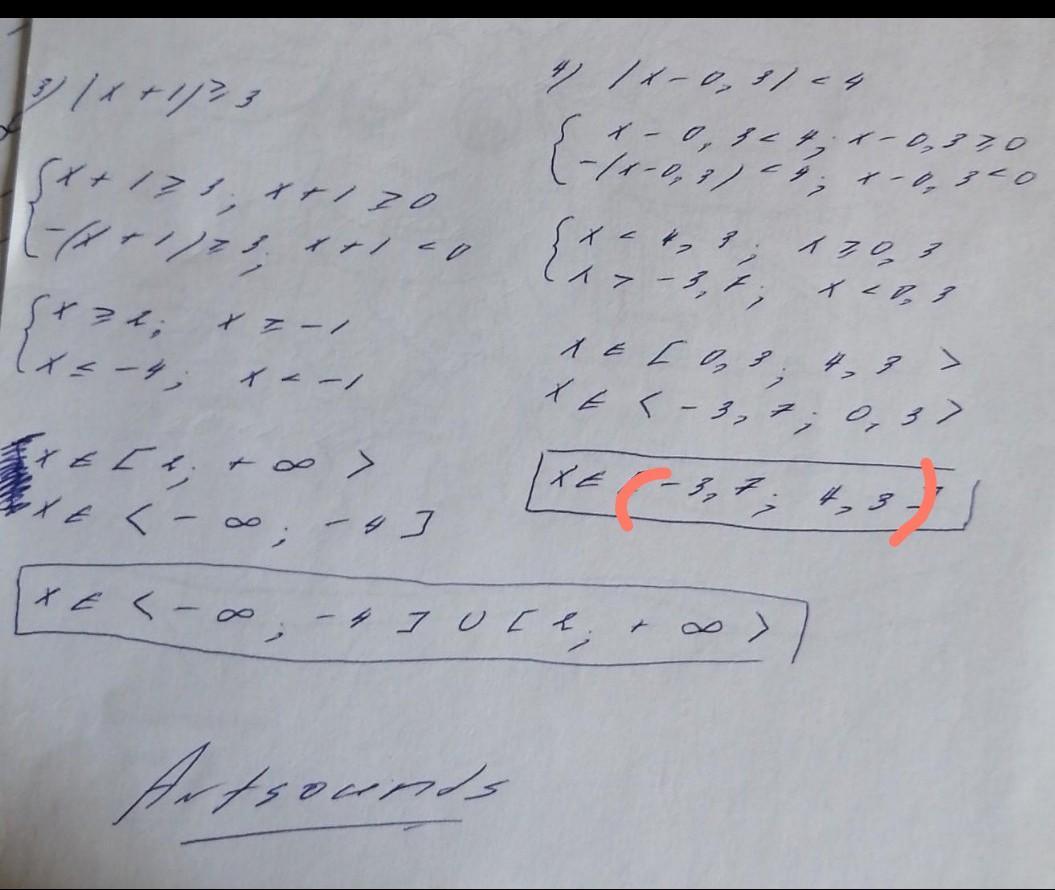 3) |x + 1| ≥ 3
{ x + 1 ≥ 3; x + 1 ≥ 0
-(x + 1) ≥ 3; x + 1 < 0
{ x ≥ 2; x ≥ -1
x ≤ -4; x < -1
x ∈ [2; + ∞ >
x ∈ < - ∞; -4]
x ∈ < - ∞; -4] ∪ [2; + ∞ >
4) |x - 0,3| < 4
{ x - 0,3 < 4; x - 0,3 ≥ 0
-(x - 0,3) < 4; x - 0,3 < 0
{ x < 4,3; x ≥ 0,3
x > -3,7; x < 0,3
x ∈ [0,3; 4,3 >
x ∈ < -3,7; 0,3 >
x ∈ (-3,7; 4,3)
Artsounds